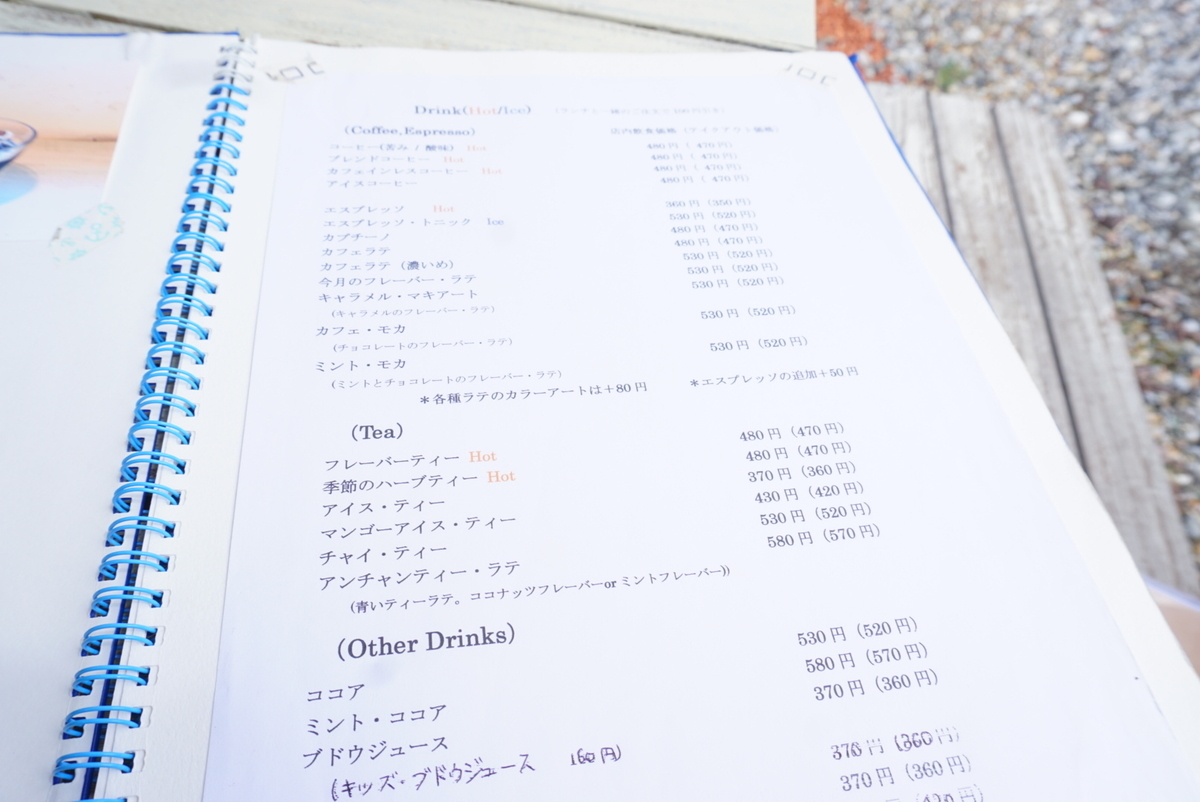 Drink(Hot/Ice)
（Coffee,Espresso） 店内飲食価格（テイクアウト価格）
コーヒー(苦み / 酸味) Hot 480円（ 470円）
ブレンドコーヒー Hot 480円（ 470円）
カフェインレスコーヒー Hot 480円（ 470円）
アイスコーヒー 480円（ 470円）
エスプレッソ Hot 360円（350円）
エスプレッソ・トニック Ice 530円（520円）
カプチーノ 480円（470円）
カフェラテ 480円（470円）
カフェラテ（濃いめ） 530円（520円）
今月のフレーバー・ラテ 530円（520円）
キャラメル・マキアート 530円（520円）
（キャラメルのフレーバー・ラテ）
カフェ・モカ 530円（520円）
（チョコレートのフレーバー・ラテ）
ミント・モカ 530円（520円）
（ミントとチョコレートのフレーバー・ラテ）
＊各種ラテのカラーアートは＋80円 ＊エスプレッソの追加＋50円
（Tea）
フレーバーティー Hot 480円（470円）
季節のハーブティー Hot 480円（470円）
アイス・ティー 370円（360円）
マンゴーアイス・ティー 430円（420円）
チャイ・ティー 530円（520円）
アンチャンティー・ラテ 580円（570円）
(青いティーラテ。ココナッツフレーバーor ミントフレーバー))
（Other Drinks）
ココア 530円（520円）
ミント・ココア 580円（570円）
ブドウジュース 370円（360円）
(キッズ・ブドウジュース 160円)
370円（360円）
370円（360円）